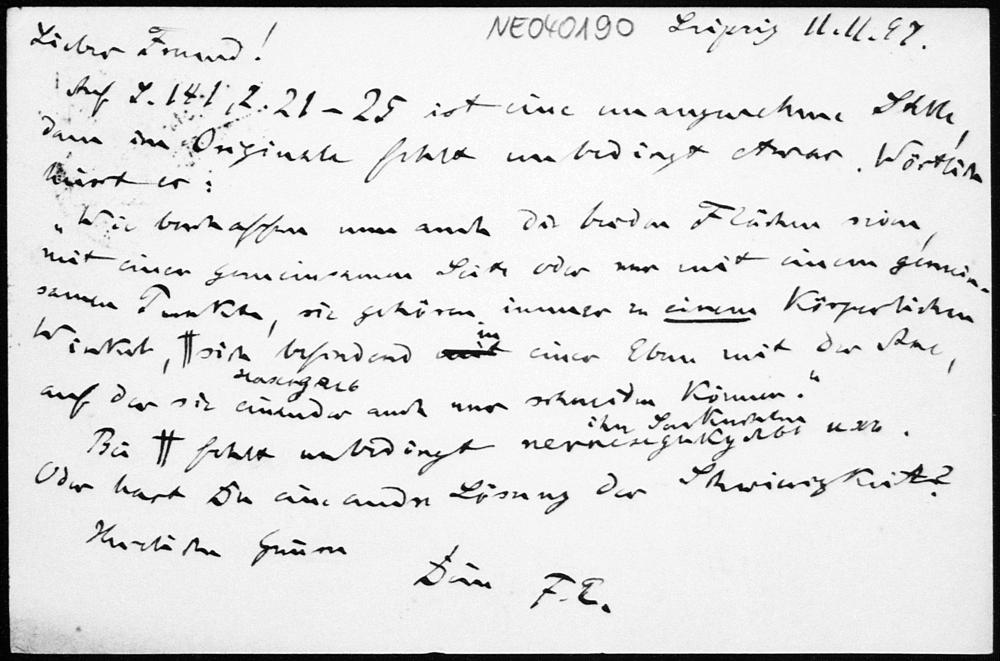 NE040190 Leipzig 11.11.97.
Lieber Freund!
Auf S. 141, Z. 21–25 ist eine unangenehme Stelle,
denn im Originale fehlt unbedingt etwas. Wörtlich
heisst es:
„Wie beschaffen nun auch die beiden Flächen seien,
mit einer gemeinsamen Seite oder nur mit einem gemein-
samen Punkte, sie gehören immer zu einem Körperlichen
Winkel, ╫ sich befindend in einer Ebene mit der Axe,
auf der sie einander auch nur schneiden können.“
Bei ╫ fehlt unbedingt
ihre Senkrechten
usw.
Oder hast Du eine andre Lösung der Schwierigkeit?
Herzliche Grüsse
Dein F. E.